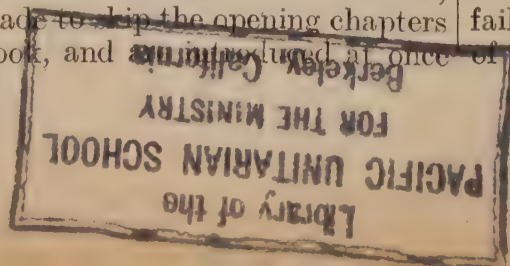 ade to skip the opening chapters
ook, and introduced at once
fail
of
Library of the
PACIFIC UNITARIAN SCHOOL
FOR THE MINISTRY
Berkeley California